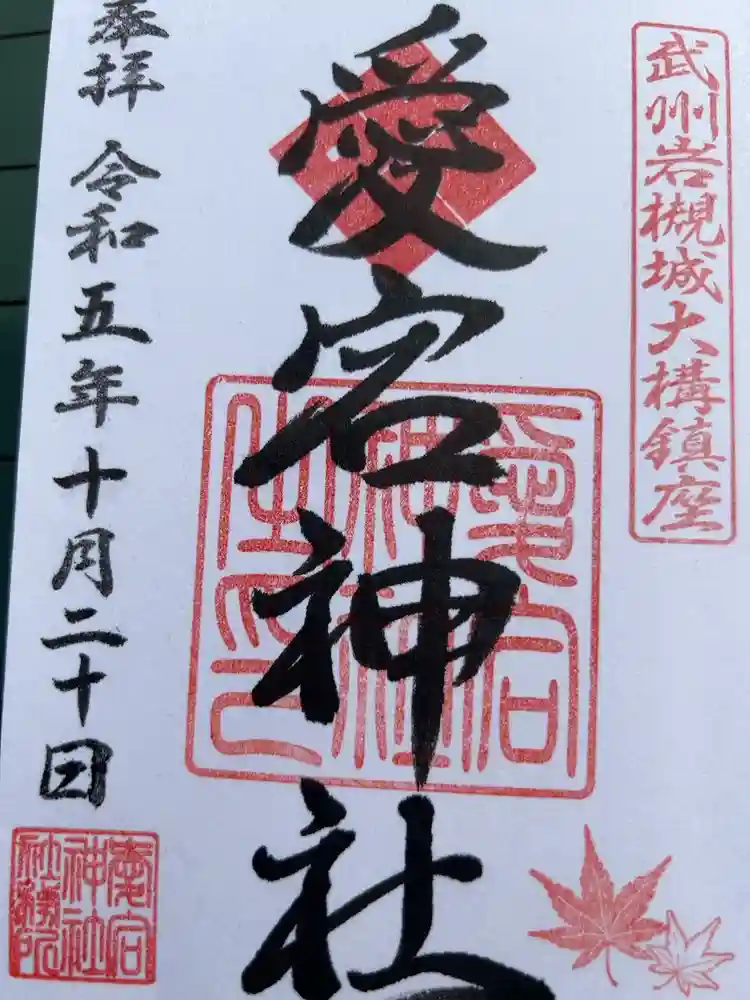 武州岩槻城大構鎮座
愛宕神社
奉拝 令和五年十月二十日
愛宕
神社
之印
愛宕
神社